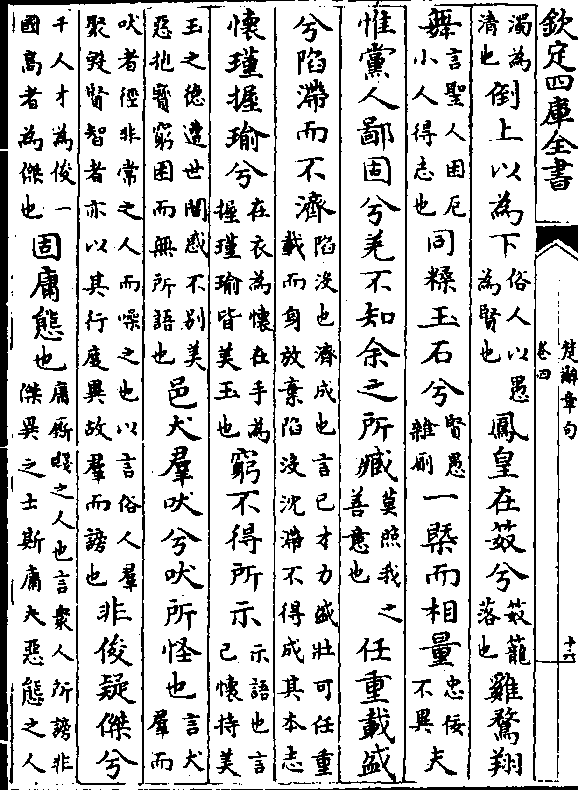 欽定四庫全書
楚辭章句
卷四
十六
濁為清也倒上以為下俗人以愚為賢也鳳皇在笯兮笯籠落也雞鶩翔
舞言聖人困厄小人得志也同糅玉石兮賢愚雜廁一槩而相量忠佞不異夫
惟黨人鄙固兮羌不知余之所臧莫照我之善意也任重載盛
兮陷滯而不濟陷没也濟成也言已才力盛壯可任重載而身放棄陷没沈滯不得成其本志
懷瑾握瑜兮在衣為懷在手為握瑾瑜皆美玉也窮不得所示示語也言己懷持美
玉之德遭世闇惑不别美惡抱寶窮困而無所語也邑犬羣吠兮吠所怪也言犬羣而
吠者徑非常之人而噪之也以言俗人羣聚毀賢智者亦以其行度異故羣而謗也非俊疑傑兮
千人才為俊一國高者為傑也固庸態也庸廝賤之人也言衆人所謗非傑異之士斯庸夫惡態之人